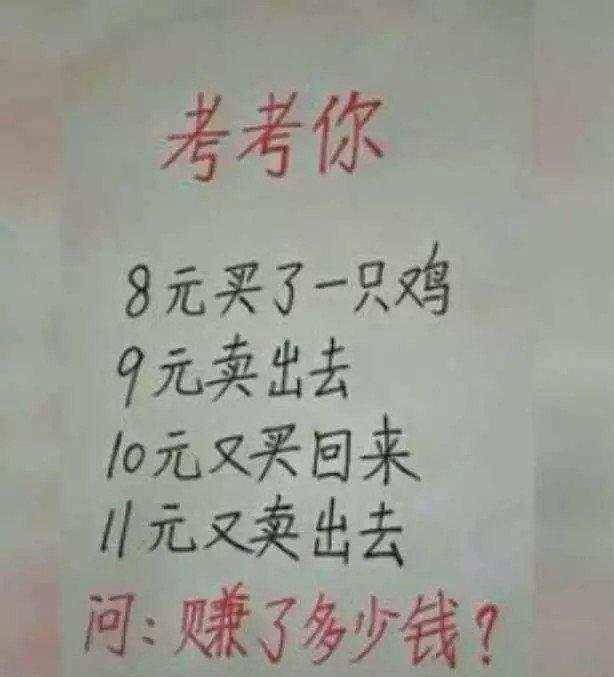 考考你
8元买了一只鸡
9元卖出去
10元又买回来
11元又卖出去
问:赚了多少钱?